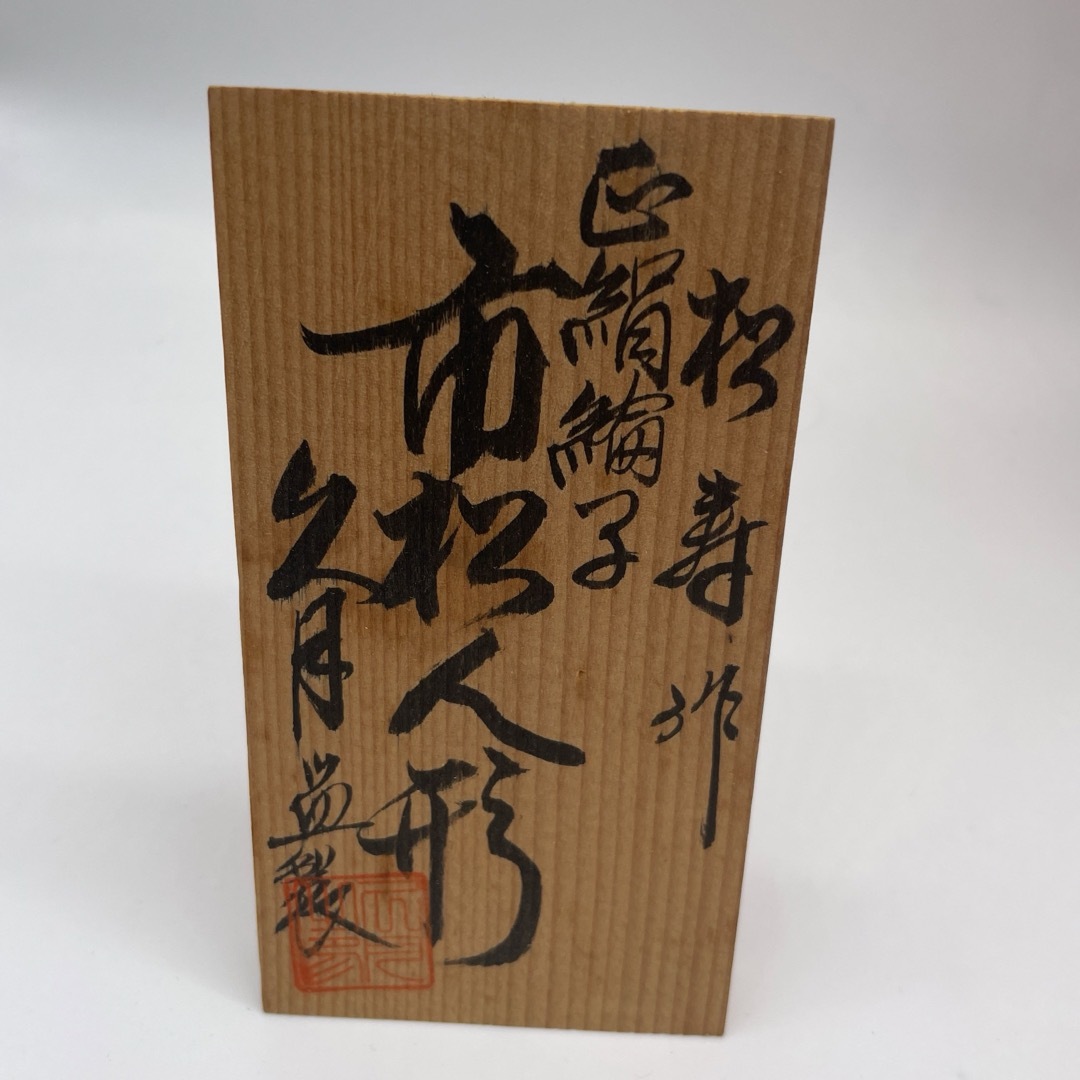 松寿作
正絹綸子
市松人形
久月監製